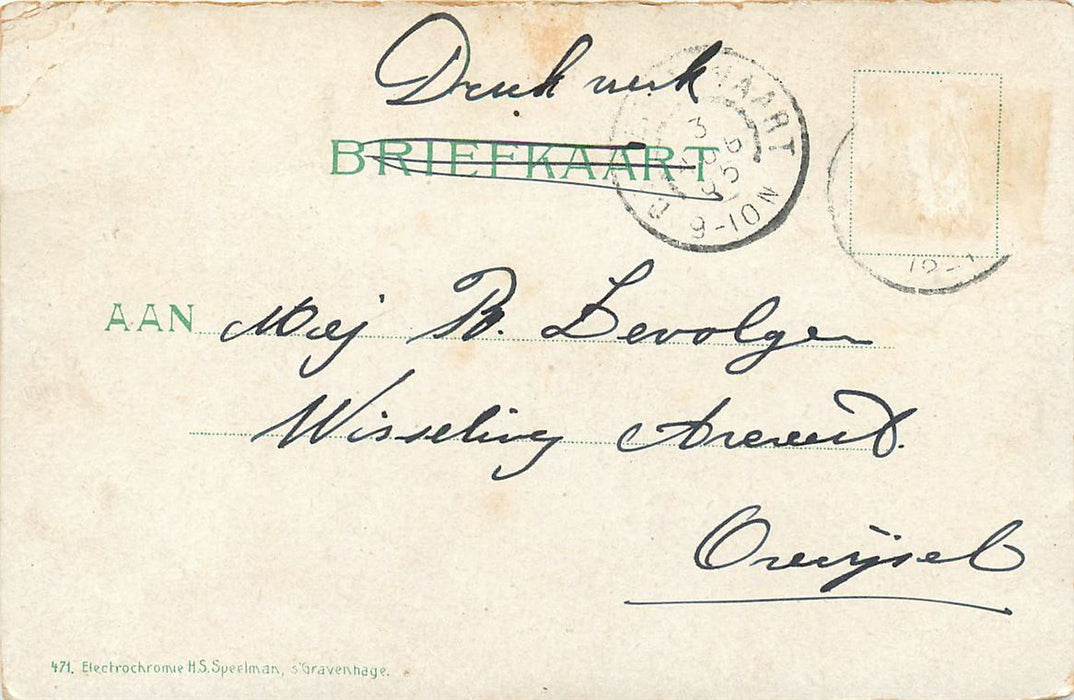 Drukwerk
BRIEFKAART
MAART
3 8 6
05
9-10N
12-1
AAN Mej B. Levolger
Wisseling
Overijsel
471. Electrochromie H.S. Speelman, s'Gravenhage.